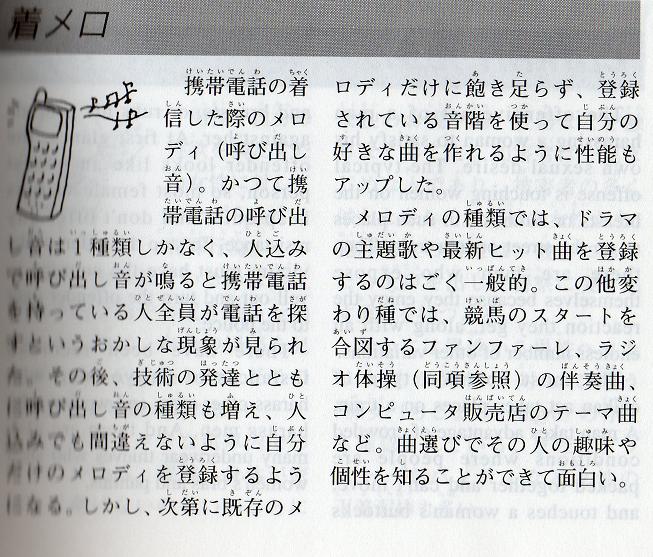 着メロ
携帯電話の着
信した際のメロ
ディ（呼び出し
音）。かつて携
帯電話の呼び出
し音は１種類しかなく、人込み
で呼び出し音が鳴ると携帯電話
を持っている人全員が電話を探
すというおかしな現象が見られ
た。その後、技術の発達ととも
に呼び出し音の種類も増え、人
込みでも間違えないように自分
だけのメロディを登録するよう
になる。しかし、次第に既存のメ
ロディだけに飽き足らず、登録
されている音階を使って自分の
好きな曲を作れるように性能も
アップした。
メロディの種類では、ドラマ
の主題歌や最新ヒット曲を登録
するのはごく一般的。この他変
わり種では、競馬のスタートを
合図するファンファーレ、ラジ
オ体操（同項参照）の伴奏曲、
コンピュータ販売店のテーマ曲
など。曲選びでその人の趣味や
個性を知ることができて面白い。